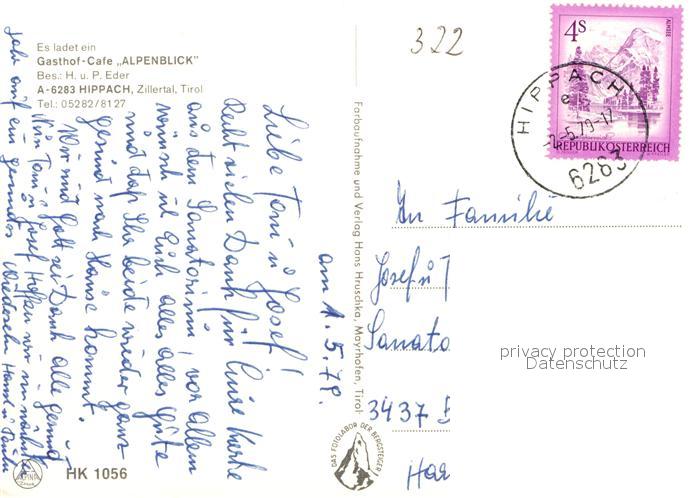 Es ladet ein
Gasthof-Cafe „ALPENBLICK"
Bes.: H. u. P. Eder
A-6283 HIPPACH, Zillertal, Tirol
Tel.: 05282/8127
322
4S
ALMSEE
REPUBLIK ÖSTERREICH
HIPPACH
e
-2.-5.79-17
6283
am 1.5.79.
Liebe Toni u Josef!
Recht vielen Dank für Eure Karte
aus dem Sanatorium, vor allem
wünsch ich Euch alles alles Gute
und daß Ihr beide wieder ganz
gesund nach Hause kommt.
Wir sind Gott sei Dank alle gesund
Toni u Josef hoffen wir im nächsten
Jahr auf ein gesundes Wiedersehn
Farbaufnahme und Verlag Hans Hruschka, Mayrhofen, Tirol
An Familie
Josef u T
Sanato
3437
privacy protection
Datenschutz
DAS FOTOLABOR DER BERGSTEIGER
ALPINA
HK 1056